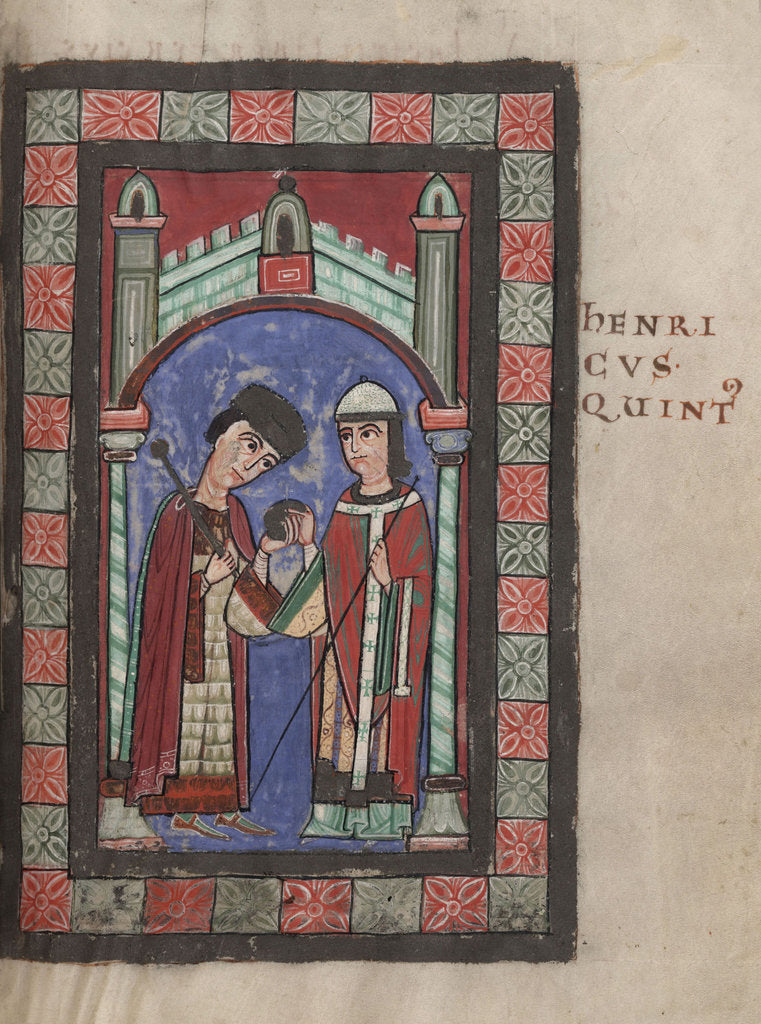 hENRI
CVS·
QUINTꝰ